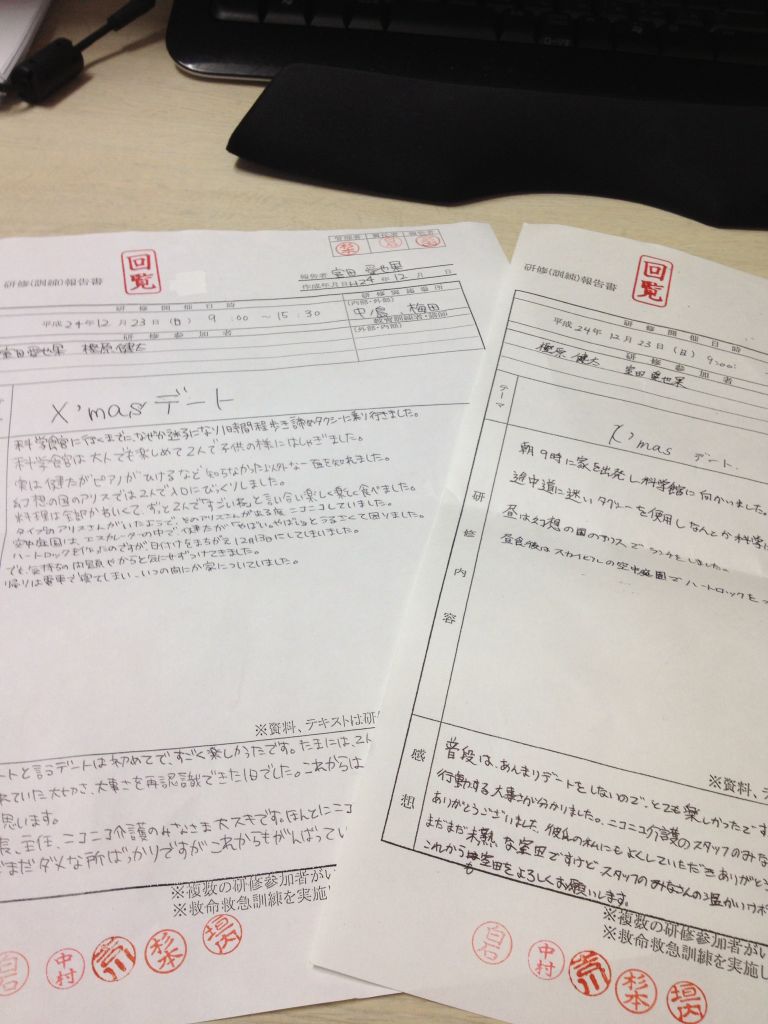 回覧
研修(訓練)報告書
管理者 責任者 報告者
報告者 室田 亜也果
作成年月日 H24年 12月 日
研修開催日時
研修実施場所
平成24年12月23日(日) 9:00 ~15:30
(内部・外部)
中ノ島 梅田
研修参加者
教育訓練者・講師
(外部・内部)
室田亜也果 橿原健太
X'mas デート
科学館に行くまでに、なぜか迷子になり1時間程歩き諦めタクシーに乗り行きました。
科学食館は大人でも楽しめて2人で子供の様にはしゃぎました。
実は健太がピアノがひけるなど知らなかった以外な一面を知れました。
幻想の国のアリスでは2人で入口にびっくりしました。
料理は全部かわいくて、ずっと2人ですごいねと言い合い楽しく楽しく食べました。
タイプのアリスさんがいたようで、そのアリスさんが来る度ニコニコしていました。
空中庭園は、エスカレーターの中で、健太が「やばい。やばい。」とうるさくて困りました。
ハートロックを作ったのですが、日付けをまちがえ12月13日にしてしまいました。
でも、気持ちの問題やからと気にせずつけてきました。
帰りは電車で寝てしまい、いつの間にか家についていました。
※資料、テキストは研
ートと言うデートは初めてで、すごく楽しかったです。たまには、2人
れていた大切さ、大事さを再認識できた1日でした。これからは
思います。
長、主任、ニコニコ介護のみなさま大スキです。ほんとにニコ
まだダメな所ばっかりですがこれからもがんばってい
※複数の研修参加者がい
※救命救急訓練を実施し
白石 中村 杉本 垣内
回覧
研修(訓練)報告書
研修開催日時
平成24年12月23日(日) 9:00
研修参加者
橿原健太 室田亜也果
テーマ
X'mas デート.
研修内容
朝9時に家を出発し科学館に向かいました。
途中道に迷いタクシーを使用しなんとか科学
昼は幻想の国のアリスでランチをしました。
昼食後はスカイビルの空中庭園でハートロックをつ
※資料、テ
感想
普段は、あんまりデートをしないので、とても楽しかったです
行動する大事さが分かりました。ニコニコ介護のスタッフのみな
ありがとうございました。彼氏の私にもよくしていただきありがとう
まだまだ未熟な室田ですけどスタッフのみなさんの温かいサポ
これからも室田をよろしくお願いします。
※複数の研修参加者が
※救命救急訓練を実施し
白石 中村 杉本 垣内